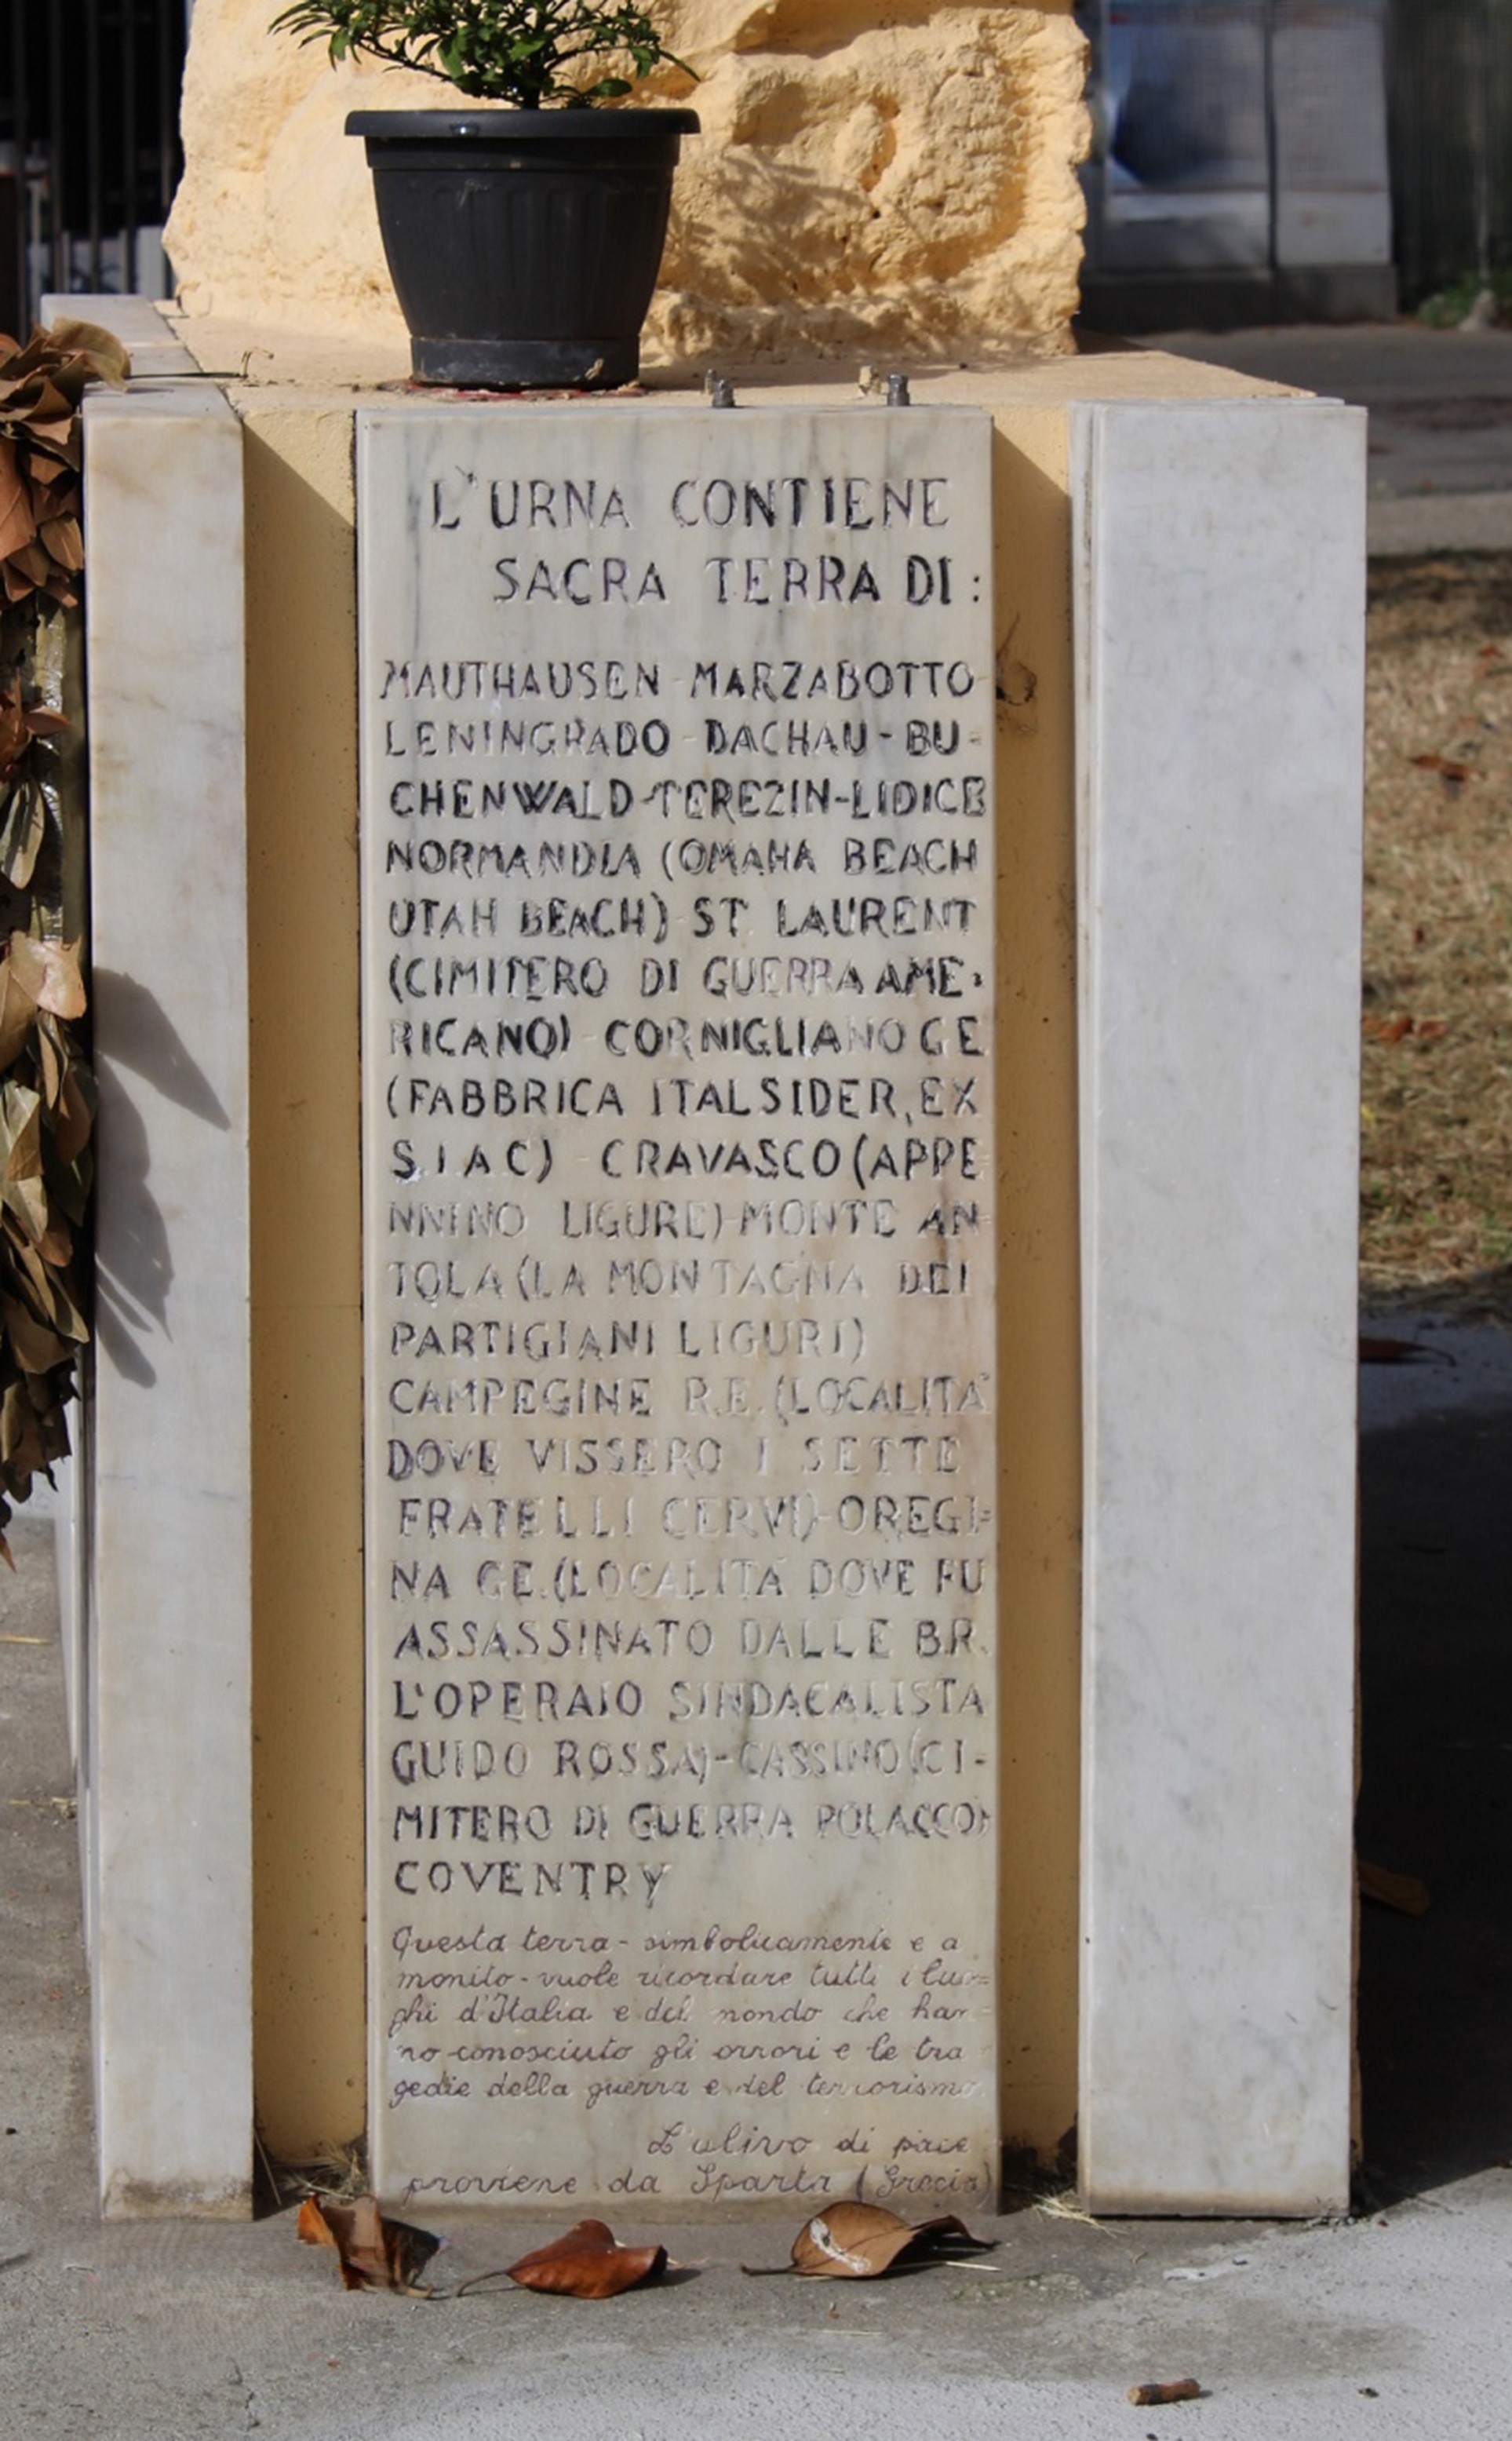 L'URNA CONTIENE
SACRA TERRA DI:
MAUTHAUSEN - MARZABOTTO
LENINGRADO - DACHAU - BU-
CHENWALD - TEREZIN - LIDICE
NORMANDIA (OMAHA BEACH
UTAH BEACH) ST LAURENT
(CIMITERO DI GUERRA AME-
RICANO) - CORNIGLIANO GE
(FABBRICA ITALSIDER, EX
S.I A C) - CRAVASCO (APPE
NNINO LIGURE) - MONTE AN-
TOLA (LA MONTAGNA DEI
PARTIGIANI LIGURI)
CAMPEGINE R.E. (LOCALITA'
DOVE VISSERO I SETTE
FRATELLI CERVI) - OREGI=
NA GE. (LOCALITA' DOVE FU
ASSASSINATO DALLE B.R.
L'OPERAIO SINDACALISTA
GUIDO ROSSA) - CASSINO (CI-
MITERO DI GUERRA POLACCO)
COVENTRY
Questa terra - simbolicamente e a
monito - vuole ricordare tutti i luo=
ghi d'Italia e del mondo che han=
no conosciuto gli orrori e le tra
gedie della guerra e del terrorismo.
L'ulivo di pace
proviene da Sparta (Grecia)